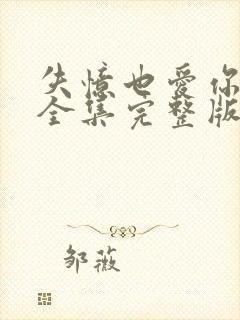 失憶也愛你
全集完整版
邹薇